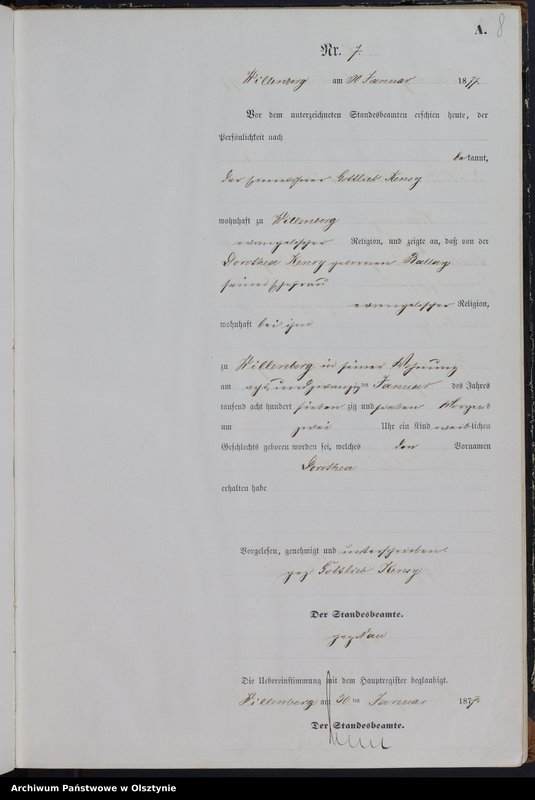 A. 8
Nr. 7.
Willenberg am 30 Januar 1877.
Vor dem unterzeichneten Standesbeamten erschien heute, der
Persönlichkeit nach
bekannt,
der Einwohner Gottlieb Kensy
wohnhaft zu Willenberg
evangelischer Religion, und zeigte an, daß von der
Dorothea Kensy geborenen Ballay
seiner Ehefrau
evangelischer Religion,
wohnhaft bei ihm
zu Willenberg in seiner Wohnung
am acht und zwanzig ten Januar des Jahres
tausend acht hundert sieben zig und sieben Morgens
um zwei Uhr ein Kind weiblichen
Geschlechts geboren worden sei, welches den Vornamen
Dorothea
erhalten habe
Vorgelesen, genehmigt und unterschrieben.
gez Gottlieb Kensy
Der Standesbeamte.
gez
Die Uebereinstimmung mit dem Hauptregister beglaubigt.
Willenberg am 30 ten Januar 1877.
Der Standesbeamte.
Archiwum Państwowe w Olsztynie